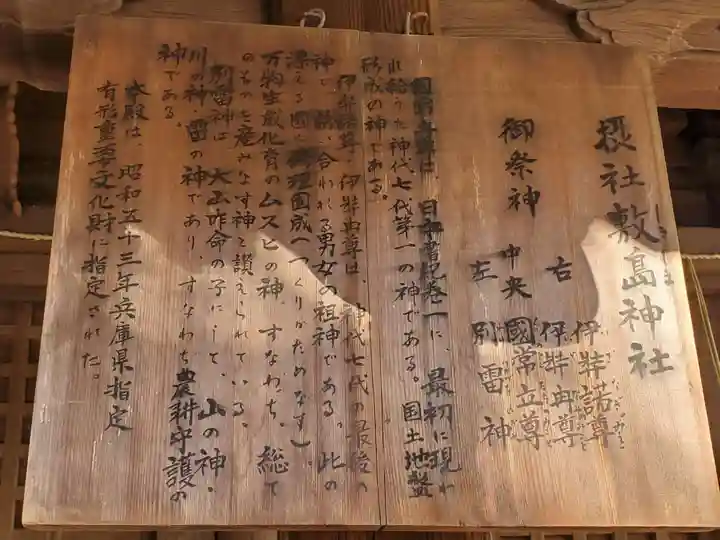 摂社敷島神社
しきしま
御祭神
右 伊弉諾尊
伊弉冉尊
中央 國常立尊
左 別雷神
國常立尊は、日本書紀巻一に、最初に現わ
れ給うた神代七代第一の神である。国土地盤
形成の神である。
伊弉諾尊・伊弉冉尊は、神代七代の最後の
神で、誘い合われる男女の祖神である。此の
漂える國を修理固成(つくりかためなす)、
万物生成化育のムスビの神、すなわち、総て
のものを産みなす神と讃えられている。
別雷神は、大山咋命の子にして、山の神・
川の神・雷の神であり、すなわち農耕守護の
神である。
本殿は、昭和五十三年兵庫県指定
有形重要文化財に指定された。